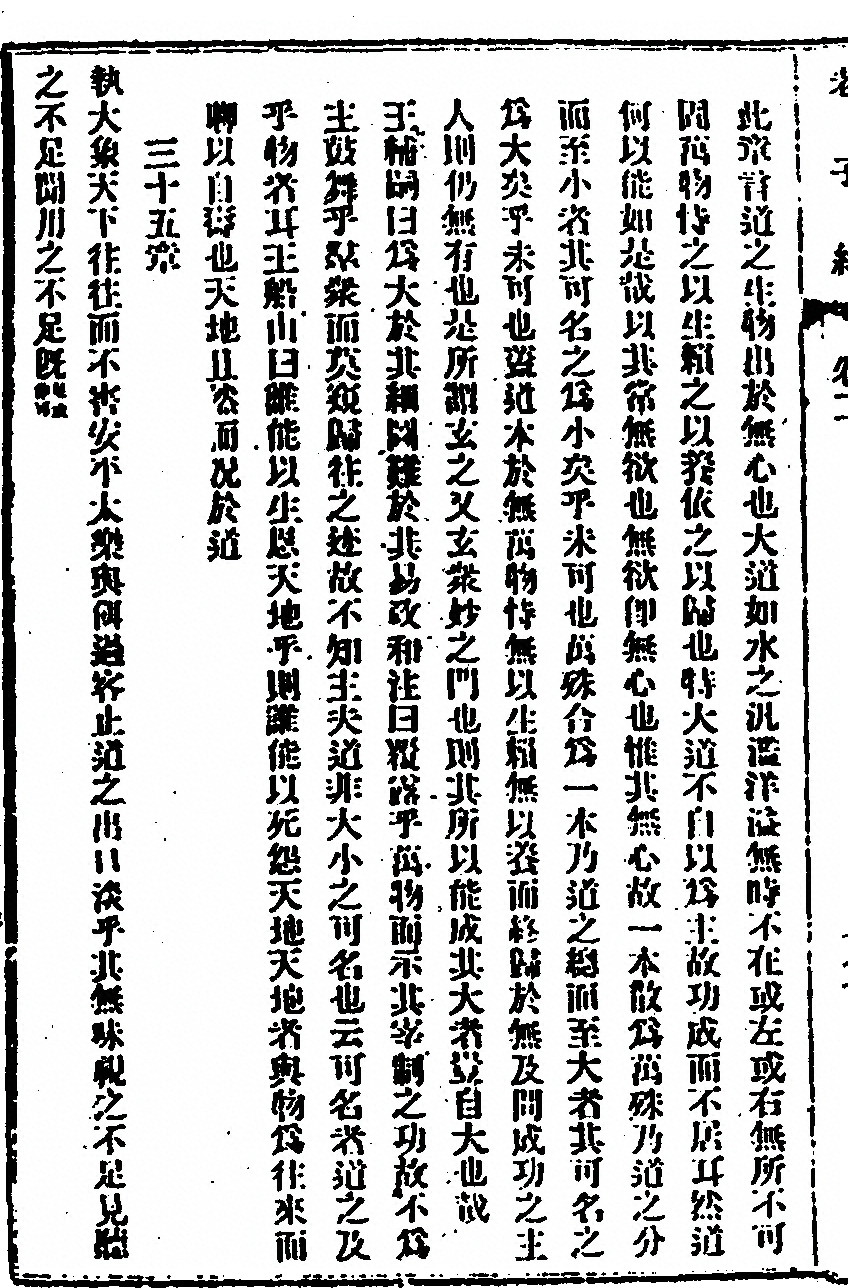 老子經 卷二
此章言道之生物出於無心也大道如水之汎濫洋溢無時不在或左或右無所不可
問萬物恃之以生賴之以養依之以歸也特大道不自以爲主故功成而不居耳然道
何以能如是哉以其常無欲也無欲卽無心也惟其無心故一本散爲萬殊乃道之分
而至小者其可名之爲小矣乎未可也萬殊合爲一本乃道之總而至大者其可名之
爲大矣乎未可也蓋道本於無萬物恃無以生賴無以養而終歸於無及問成功之主
人則仍無有也是所謂玄之又玄衆妙之門也則其所以能成其大者豈自大也哉
王輔嗣曰爲大於其細圖難於其易政和注曰覆露乎萬物而示其宰制之功故不爲
主鼓舞乎羣衆而莫窺歸往之迹故不知主夫道非大小之可名也云可名者道之及
乎物者耳王船山曰誰能以生恩天地乎則誰能以死怨天地天地者與物爲往來而
聊以自壽也天地且然而况於道
三十五章
執大象天下往往而不害安平太樂與餌過客止道之出口淡乎其無味視之不足見聽
之不足聞用之不足旣